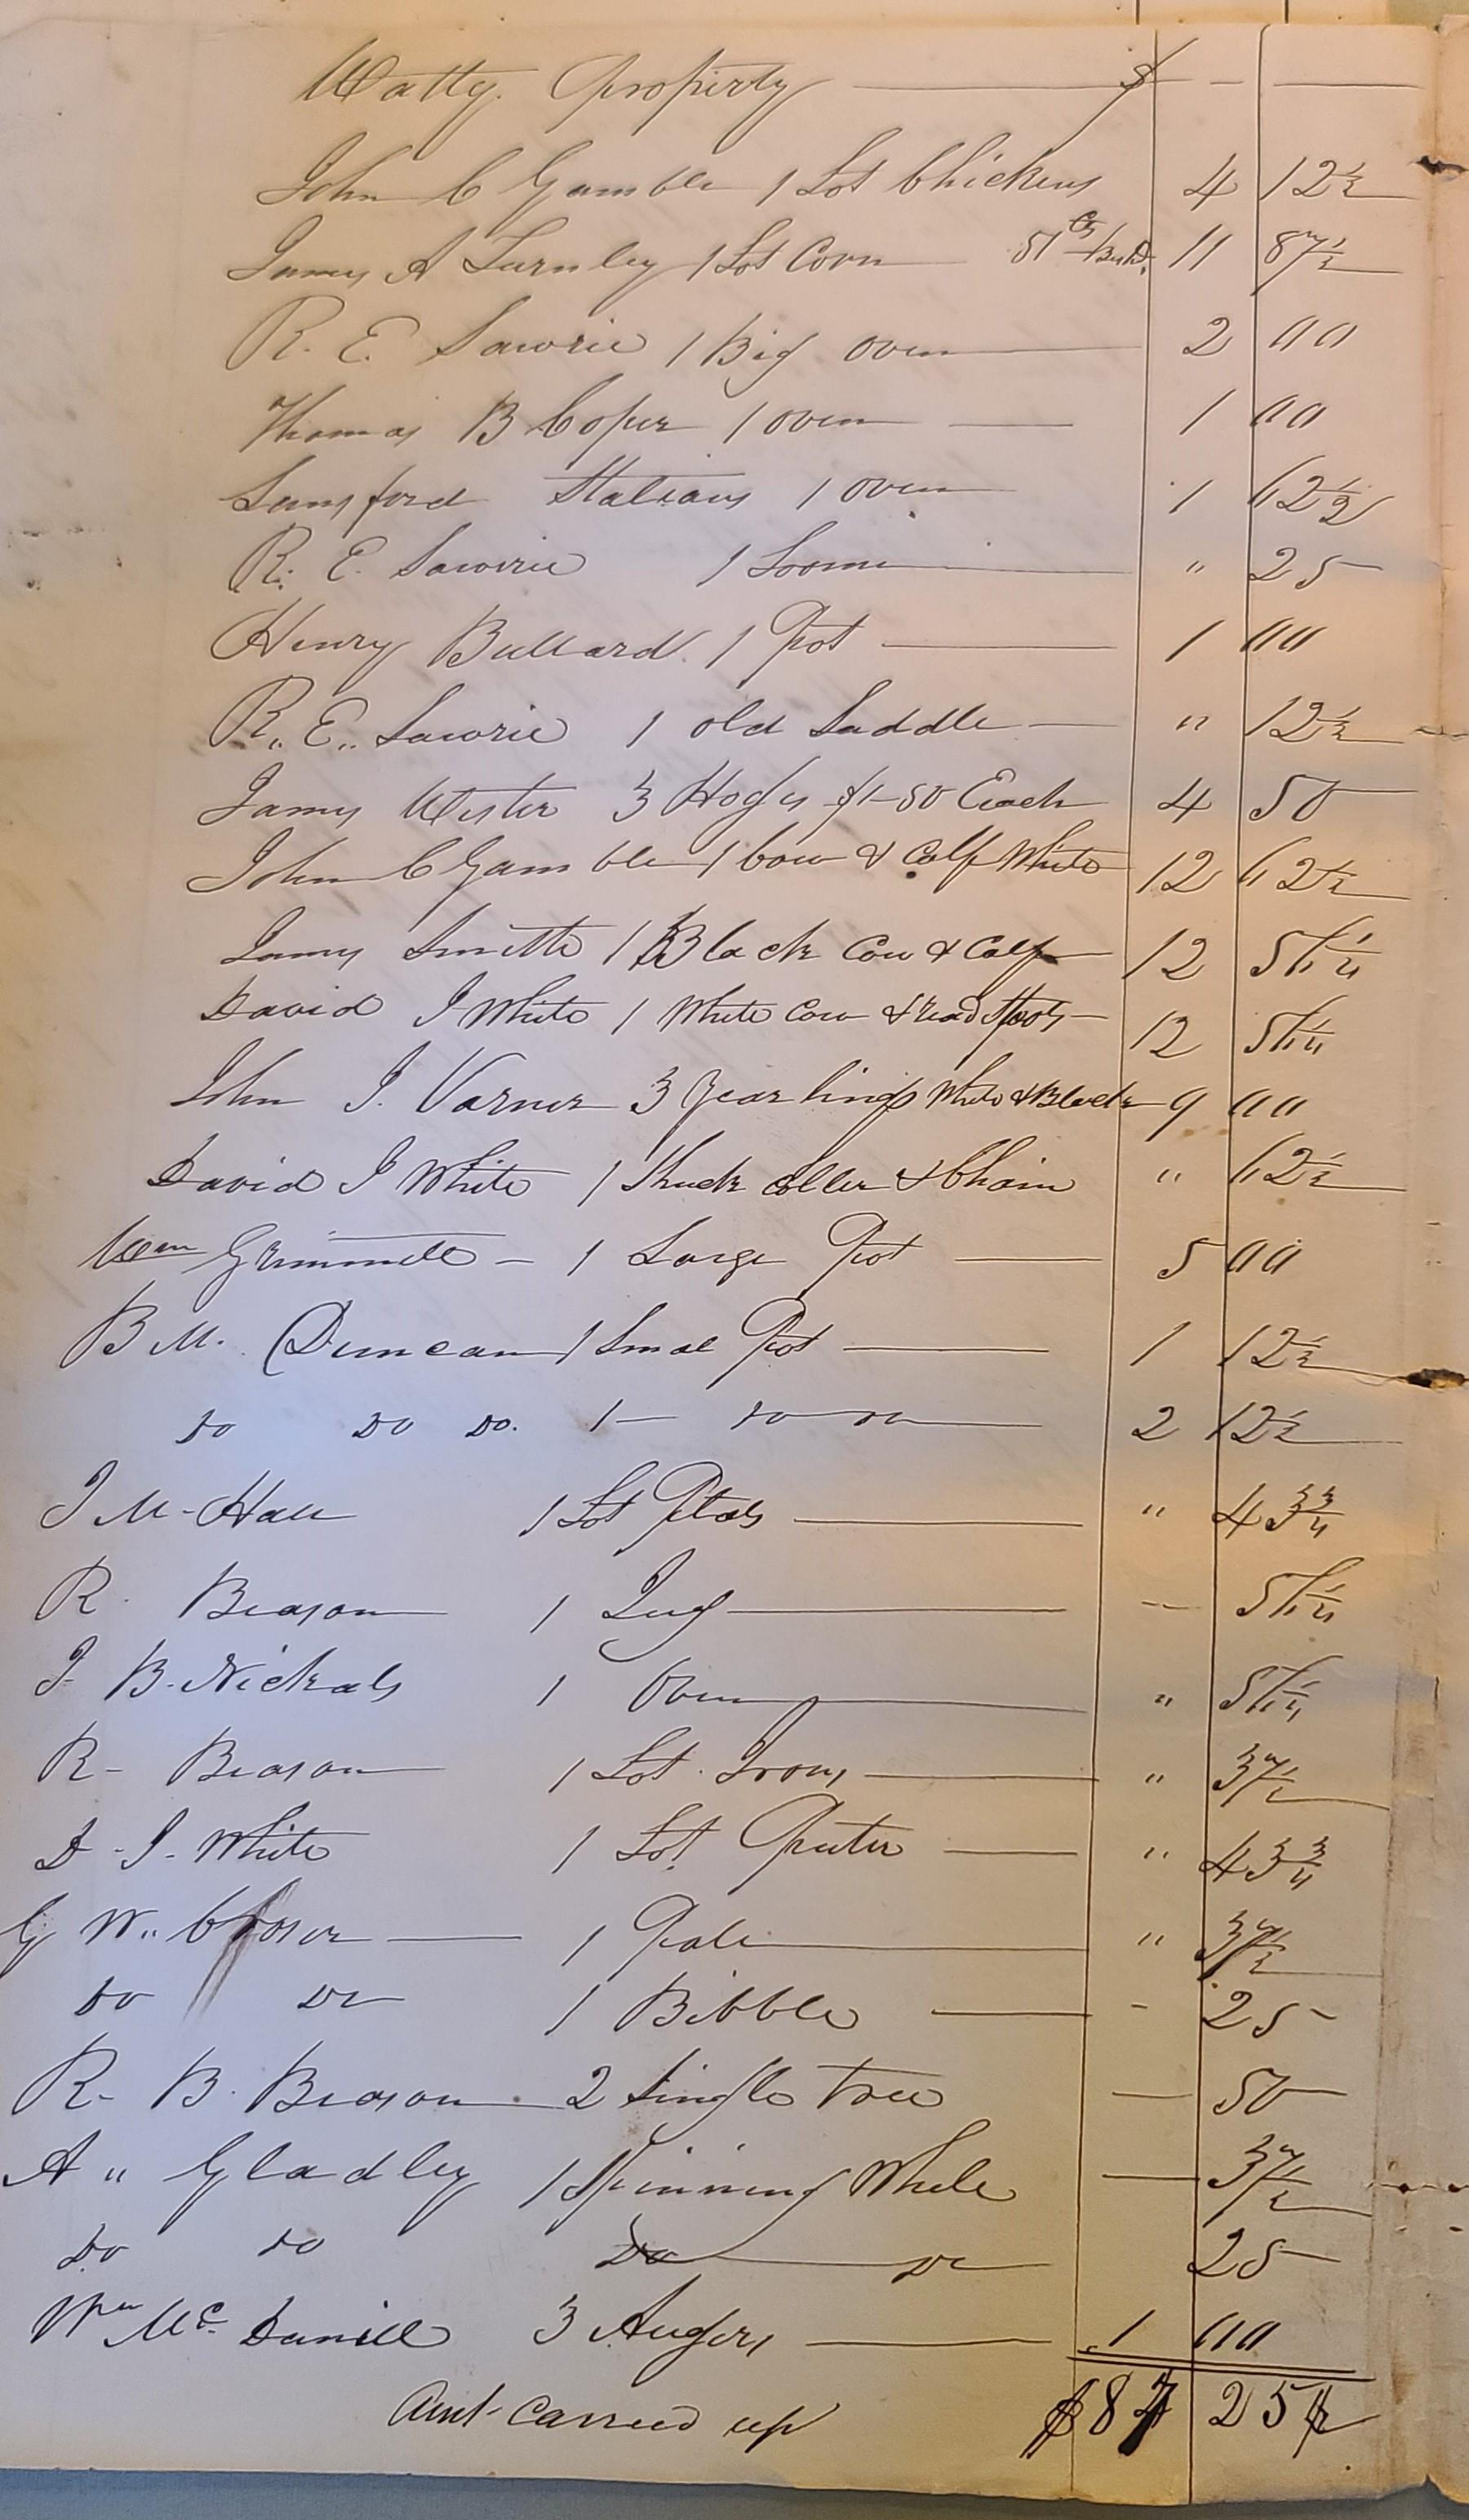 Watty. Property $ - -
John C Gamble 1 Lot Chickens 4 12½
James A Turnley 1 Lot Corn 51 cts Bush. 11 87½
R. E. Sawrie 1 Big oven 2 00
Thomas B Coper 1 oven 1 00
Lunsford Statians 1 oven 1 62½
R. E. Sawrie 1 Loom " 25
Henry Bullard. 1 Pot 1 00
R,, E,, Sawrie 1 old Saddle " 12½
James Wester 3 Hogs $1-50 Each 4 50
John C Gamble 1 Cow & Calf White 12 62½
James Smith 1 Black Cow & Calf 12 56¼
David I White 1 White Cow & read Spots 12 56¼
John I. Varner 3 Yearlings White & Black 9 00
David I White 1 Shuck Coller & Chain " 62½
Wm Grimmett - 1 Large Pot 5 00
B M. Duncan 1 Smal Pot 1 12½
Do Do Do. 1 - Do Do 2 12½
I M. Hall 1 Lot " 43¾
R. Beason 1 Jug - 56¼
I. B. Nickals 1 Oven " 56¼
R - Beason 1 Lot. Irons " 37½
D. I. White 1 Lot Puter " 43¾
G W,, 1 Pale " 37½
Do Do 1 Bibble - 25
R. B. Beason. 2 Single Tree - 50
A " Gladley 1 Spinning Whele - 37½
Do Do Do Do 25
Wm Mc Daniell 3 Augers 1 00
Amt. Carried up $87 25½